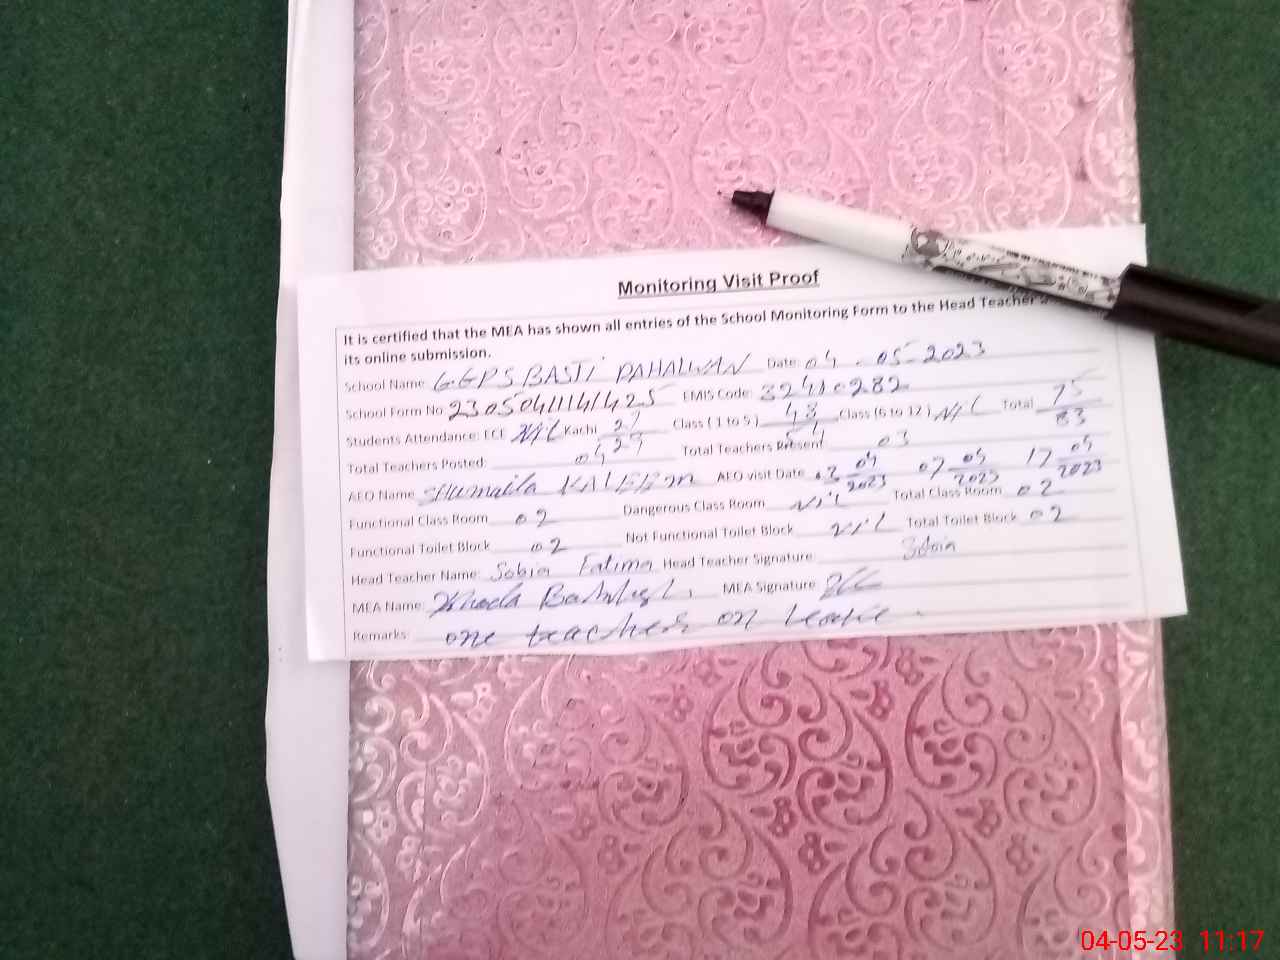 Monitoring Visit Proof
It is certified that the MEA has shown all entries of the School Monitoring Form to the Head Teacher
its online submission.
School Name: G.GPS BASTI PAHALWAN Date: 04-05-2023
School Form No: EMIS Code: 32410282
Students Attendance: ECE Nil Kachi 27/29 Class (1 to 5) 48/54 Class (6 to 12) Nil Total 75/83
Total Teachers Posted: 04 Total Teachers Present: 03
AEO Name SHumaila KALEEm AEO visit Date
Functional Class Room 02 Dangerous Class Room Nil Total Class Room 02
Functional Toilet Block 02 Not Functional Toilet Block Nil Total Toilet Block 02
Head Teacher Name: Sobia Fatima Head Teacher Signature: Sobia
MEA Name: MEA Signature
Remarks: one teacher on leave.
04-05-23 11:17